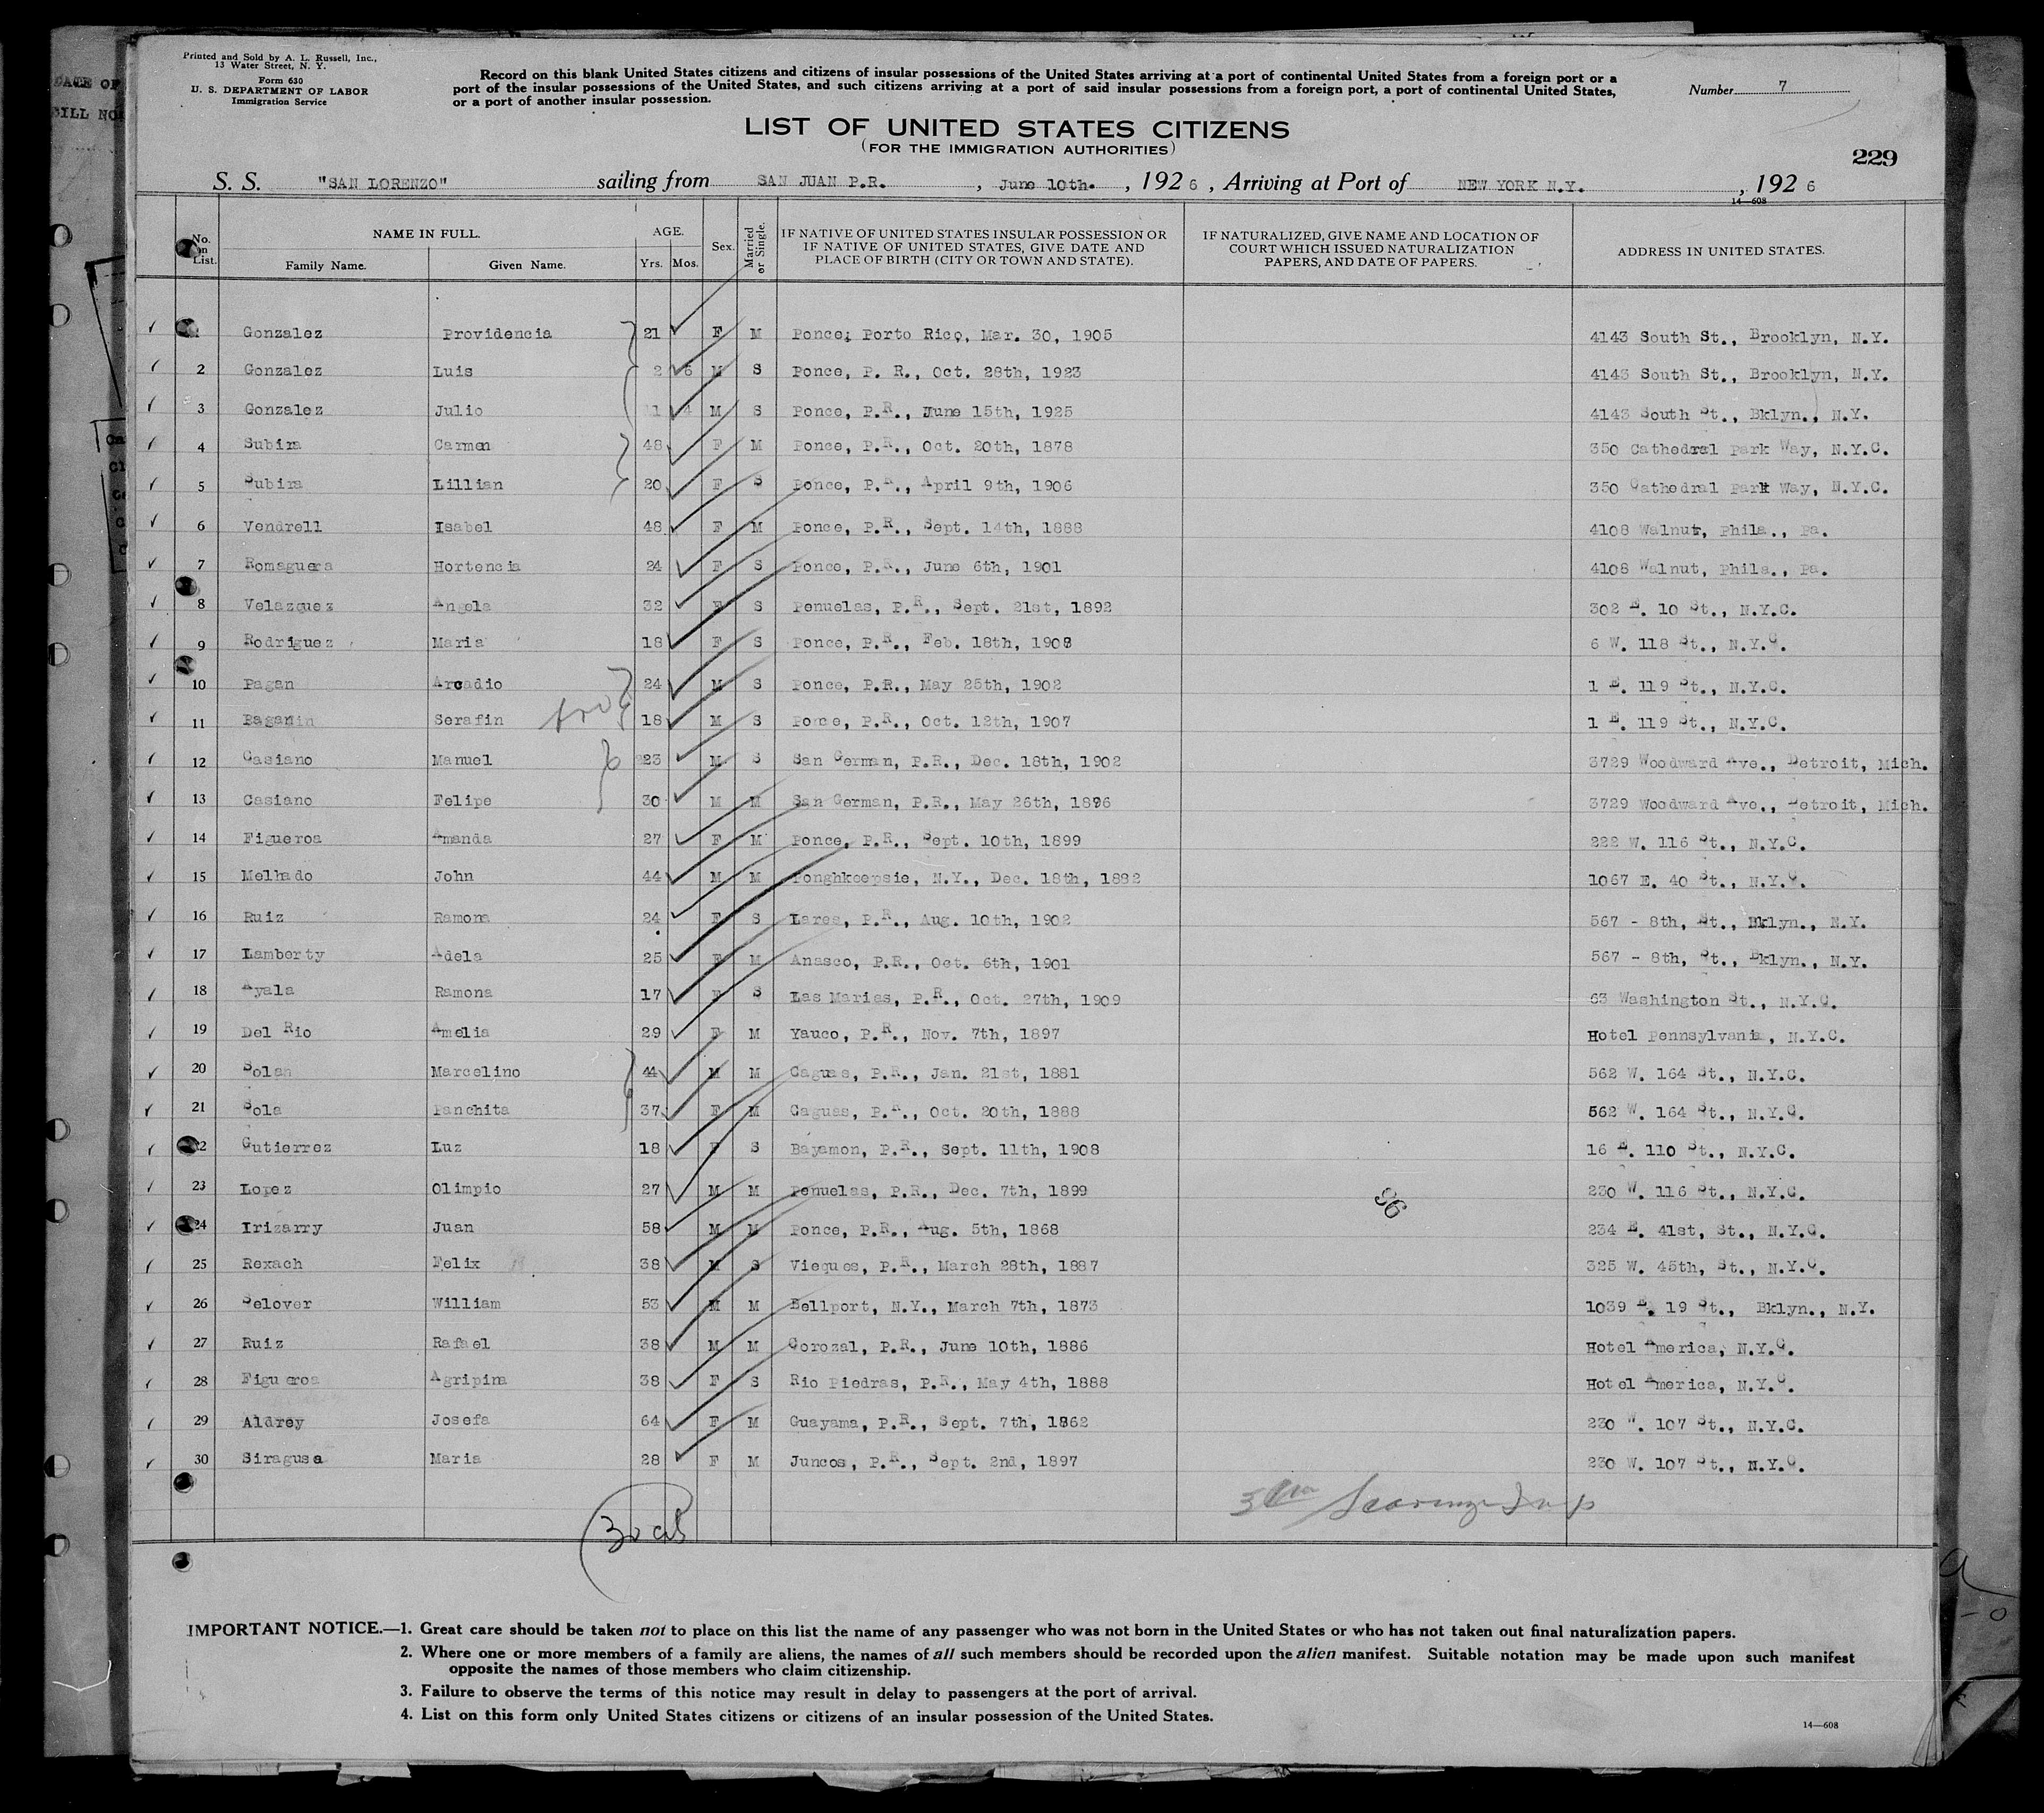 Printed and Sold by A. L. Russell, Inc.,
13 Water Street, N. Y.
Form 630
U. S. DEPARTMENT OF LABOR
Immigration Service
Record on this blank United States citizens and citizens of insular possessions of the United States arriving at a port of continental United States from a foreign port or a
port of the insular possessions of the United States, and such citizens arriving at a port of said insular possessions from a foreign port, a port of continental United States,
or a port of another insular possession.
Number 7
LIST OF UNITED STATES CITIZENS
(FOR THE IMMIGRATION AUTHORITIES)
229
S. S. "SAN LORENZO" sailing from SAN JUAN P.R. , June 10th. , 1926 , Arriving at Port of NEW YORK N.Y. , 1926
14—608
No. on List. NAME IN FULL. Family Name. Given Name. AGE. Yrs. Mos. Sex. Married or Single. IF NATIVE OF UNITED STATES INSULAR POSSESSION OR IF NATIVE OF UNITED STATES, GIVE DATE AND PLACE OF BIRTH (CITY OR TOWN AND STATE). IF NATURALIZED, GIVE NAME AND LOCATION OF COURT WHICH ISSUED NATURALIZATION PAPERS, AND DATE OF PAPERS. ADDRESS IN UNITED STATES.
1 Gonzalez Providencia 21 F M Ponce, Porto Rico, Mar. 30, 1905 4143 South St., Brooklyn, N.Y.
2 Gonzalez Luis 2 6 M S Ponce, P. R., Oct. 28th, 1923 4143 South St., Brooklyn, N.Y.
3 Gonzalez Julio 1 4 M S Ponce, P.R., June 15th, 1925 4143 South St., Bklyn., N.Y.
4 Subira Carmen 48 F M Ponce, P.R., Oct. 20th, 1878 350 Cathedral Park Way, N.Y.C.
5 Subira Lillian 20 F S Ponce, P.R., April 9th, 1906 350 Cathedral Park Way, N.Y.C.
6 Vendrell Isabel 48 F M Ponce, P.R., Sept. 14th, 1888 4108 Walnut, Phila., Pa.
7 Romaguera Hortencia 24 F S Ponce, P.R., June 6th, 1901 4108 Walnut, Phila., Pa.
8 Velazquez Angela 32 F S Penuelas, P.R., Sept. 21st, 1892 302 E. 10 St., N.Y.C.
9 Rodriguez Maria 18 F S Ponce, P.R., Feb. 18th, 1908 6 W. 118 St., N.Y.C.
10 Pagan Arcadio 24 M S Ponce, P.R., May 25th, 1902 1 E. 119 St., N.Y.C.
11 Pagan Serafin 18 M S Ponce, P.R., Oct. 12th, 1907 1 E. 119 St., N.Y.C.
12 Casiano Manuel 23 M S San German, P.R., Dec. 18th, 1902 3729 Woodward Ave., Detroit, Mich.
13 Casiano Felipe 30 M M San German, P.R., May 26th, 1896 3729 Woodward Ave., Detroit, Mich.
14 Figueroa Amanda 27 F M Ponce, P.R., Sept. 10th, 1899 222 W. 116 St., N.Y.C.
15 Melhado John 44 M M Ponghkeepsie, N.Y., Dec. 18th, 1882 1067 E. 40 St., N.Y.C.
16 Ruiz Ramona 24 F S Lares, P.R., Aug. 10th, 1902 567 - 8th, St., Bklyn., N.Y.
17 Lamberty Adela 25 F M Anasco, P.R., Oct. 6th, 1901 567 - 8th, St., Bklyn., N.Y.
18 Ayala Ramona 17 F S Las Marias, P.R., Oct. 27th, 1909 63 Washington St., N.Y.C.
19 Del Rio Amelia 29 F M Yauco, P.R., Nov. 7th, 1897 Hotel Pennsylvania, N.Y.C.
20 Sola Marcelino 44 M M Caguas, P.R., Jan. 21st, 1881 562 W. 164 St., N.Y.C.
21 Sola Panchita 37 F M Caguas, P.R., Oct. 20th, 1888 562 W. 164 St., N.Y.C.
22 Gutierrez Luz 18 F S Bayamon, P.R., Sept. 11th, 1908 16 E. 110 St., N.Y.C.
23 Lopez Olimpio 27 M M Penuelas, P.R., Dec. 7th, 1899 230 W. 116 St., N.Y.C.
96
24 Irizarry Juan 58 M M Ponce, P.R., Aug. 5th, 1868 234 E. 41st, St., N.Y.C.
25 Rexach Felix 38 M S Vieques, P.R., March 28th, 1887 325 W. 45th, St., N.Y.C.
26 Selover William 53 M M Bellport, N.Y., March 7th, 1873 1039 E. 19 St., Bklyn., N.Y.
27 Ruiz Rafael 38 M M Corozal, P.R., June 10th, 1886 Hotel America, N.Y.C.
28 Figueroa Agripina 38 F S Rio Piedras, P.R., May 4th, 1888 Hotel America, N.Y.C.
29 Aldrey Josefa 64 F M Guayama, P.R., Sept. 7th, 1862 230 W. 107 St., N.Y.C.
30 Siragusa Maria 28 F M Juncos, P.R., Sept. 2nd, 1897 230 W. 107 St., N.Y.C.
IMPORTANT NOTICE.—1. Great care should be taken not to place on this list the name of any passenger who was not born in the United States or who has not taken out final naturalization papers.
2. Where one or more members of a family are aliens, the names of all such members should be recorded upon the alien manifest. Suitable notation may be made upon such manifest
opposite the names of those members who claim citizenship.
3. Failure to observe the terms of this notice may result in delay to passengers at the port of arrival.
4. List on this form only United States citizens or citizens of an insular possession of the United States.
14—608